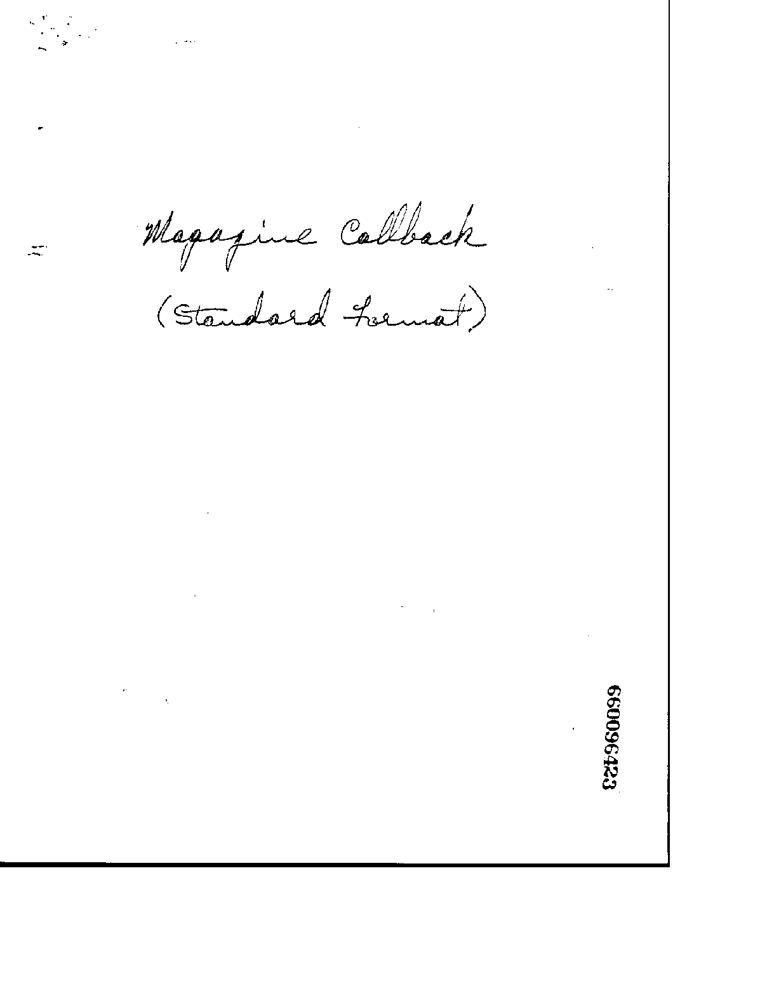 Magazine Callback
(Standard Format)
660096423